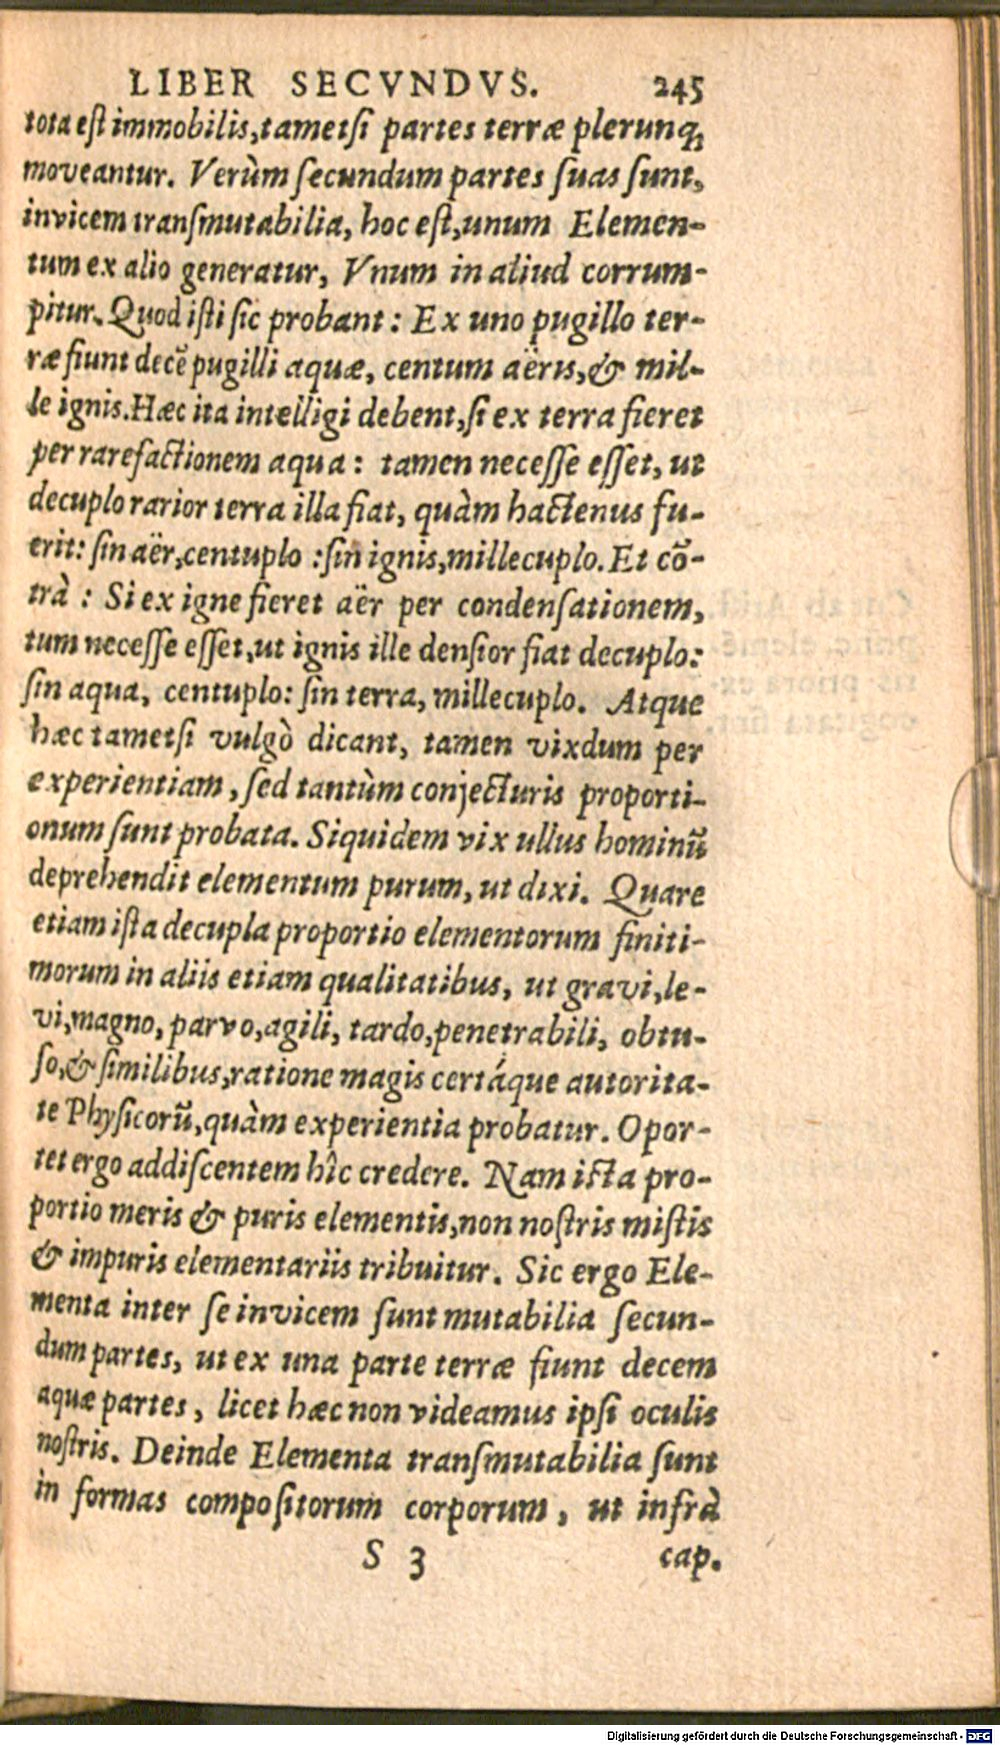 LIBER SECVNDVS. 245
tota est immobilis, tametsi partes terræ plerunq́;
moveantur. Verùm secundum partes suas sunt,
invicem transmutabilia, hoc est, unum Elemen-
tum ex alio generatur, Vnum in aliud corrum-
pitur. Quod isti sic probant: Ex uno pugillo ter-
ræ fiunt decẽ pugilli aquæ, centum aëris, & mil-
le ignis. Hæc ita intelligi debent, si ex terra fieret
per rarefactionem aqua: tamen necesse esset, ut
decuplo rarior terra illa fiat, quàm hactenus fu-
erit: sin aër, centuplo: sin ignis, millecuplo. Et cõ-
trà: Si ex igne fieret aër per condensationem,
tum necesse esset, ut ignis ille densior fiat decuplo:
sin aqua, centuplo: sin terra, millecuplo. Atque
hæc tametsi vulgò dicant, tamen vixdum per
experientiam, sed tantùm conjecturis proporti-
onum sunt probata. Siquidem vix ullus hominũ
deprehendit elementum purum, ut dixi. Quare
etiam ista decupla proportio elementorum finiti-
morum in aliis etiam qualitatibus, ut gravi, le-
vi, magno, parvo, agili, tardo, penetrabili, obtu-
so, & similibus, ratione magis certáque autorita-
te Physicorũ, quàm experientia probatur. Opor-
tet ergo addiscentem hîc credere. Nam icta pro-
portio meris & puris elementis, non nostris mistis
& impuris elementariis tribuitur. Sic ergo Ele-
menta inter se invicem sunt mutabilia secun-
dum partes, ut ex una parte terræ fiunt decem
aquæ partes, licet hæc non videamus ipsi oculis
nostris. Deinde Elementa transmutabilia sunt
in formas compositorum corporum, ut infrà
S 3 cap.
Digitalisierung gefördert durch die Deutsche Forschungsgemeinschaft - DFG